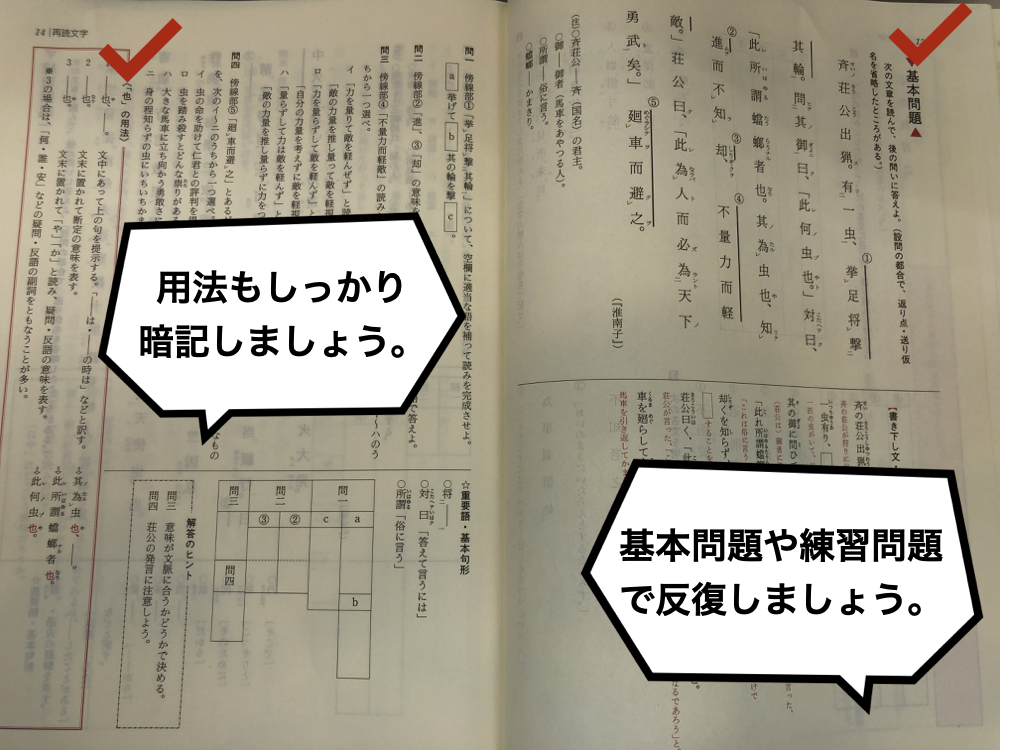 基本問題▲
次の文章を読んで、後の問いに答えよ。(設問の都合で、返り点・送り仮
名を省略したところがある。)
斉荘公出猟。有一虫、挙足将撃①
其輪。問其御曰、「此何虫也。」対曰、
「此所謂螳螂者也。其為虫也、知
進②而不知却③、不量力而軽④
敵。」荘公曰、「此為人而必為天下
勇武矣。」廻車而避之。⑤
(『淮南子』)
(注)○斉荘公―斉(国名)の君主。
○御―御者(馬車をあやつる人)。
○所謂―俗に言う。
○螳螂―かまきり。
【書き下し文
斉の荘公出猟
一虫有り、
其の御に問ひ
「此れ所謂螳
却くを知らず、
荘公曰く、「此
車を廻らして
基本問題や練習問題
で反復しましょう。
14 再読文字
問一 傍線部①「挙足将撃其輪」について、空欄に適当な語を補って読みを完成させよ。
a 挙げて b 其の輪を撃 c 。
問二 傍線部②「進」、③「却」の意味を
で答えよ。
問三 傍線部④「不量力而軽敵」の読み
〜ハのう
ちから一つ選べ。
イ 「力を量りて敵を軽んぜず」と読
「敵の力量を推し量って敵を軽
ロ 「力を量らずして敵を軽んず」と
「自分の力量を考えずに敵を軽視
ハ 「量らずして力は敵を軽んず」と
「敵の力量を推し量らずに力をつ
問四 傍線部⑤「廻車而避之」とあるが
なもの
を、次のイ〜ニのうちから一つ選べ。
イ 虫の命を助けて仁君との評判を得
ロ 虫を踏み殺すとどんな祟りがある
ハ 大きな馬車に立ち向かう勇敢さに
ニ 身の程知らずの虫にいちいちかま
☆重要語・基本句形
○将
○対曰「答えて言うには」
○所謂「俗に言う」
問一 a b c
問二 ② ③
問三
問四
解答のヒント
問三 意味が文脈に合うかどうかで決める。
問四 荘公の発言に注意しよう。
〈「也」の用法〉
文中にあって上の句を提示する。「――は・――の時は」などと訳す。
⇨其為虫也、――。
2 ――也。 文末に置かれて断定の意味を表す。
⇨此所謂螳螂者也。
3 ――也。 文末に置かれて「や」「か」と読み、疑問・反語の意味を表す。
⇨此何虫也。
※3の場合は、「何・誰・安」などの疑問・反語の副詞をともなうことが多い。
用法もしっかり
暗記しましょう。